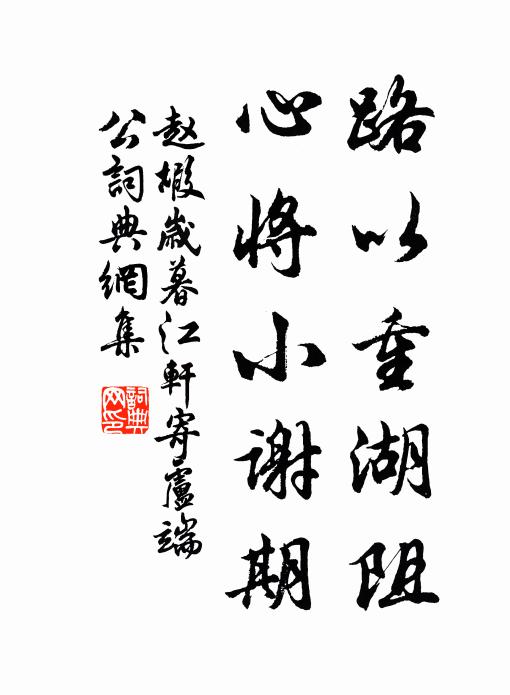 路以重湖阻
心将小謝期
赵嘏歲暮江軒寄盧端
公詞典網集
詞典
网印